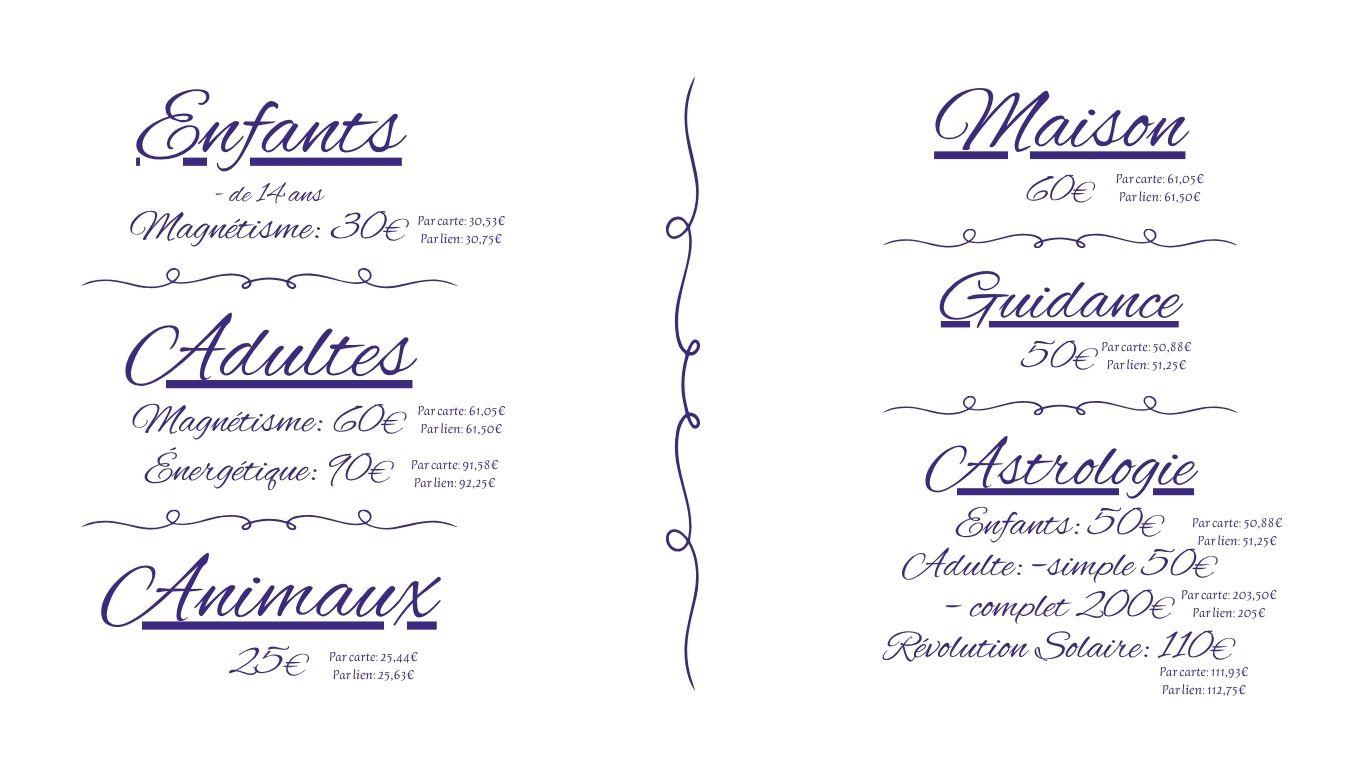 Enfants
- de 14 ans
Magnétisme: 30€ Par carte: 30,53€
Par lien: 30,75€
Adultes
Magnétisme: 60€ Par carte: 61,05€
Par lien: 61,50€
Énergétique: 90€ Par carte: 91,58€
Par lien: 92,25€
Animaux
25€ Par carte: 25,44€
Par lien: 25,63€
Maison
60€ Par carte: 61,05€
Par lien: 61,50€
Guidance
50€ Par carte: 50,88€
Par lien: 51,25€
Astrologie
Enfants: 50€ Par carte: 50,88€
Par lien: 51,25€
Adulte: -simple 50€
- complet 200€ Par carte: 203,50€
Par lien: 205€
Révolution Solaire: 110€
Par carte: 111,93€
Par lien: 112,75€